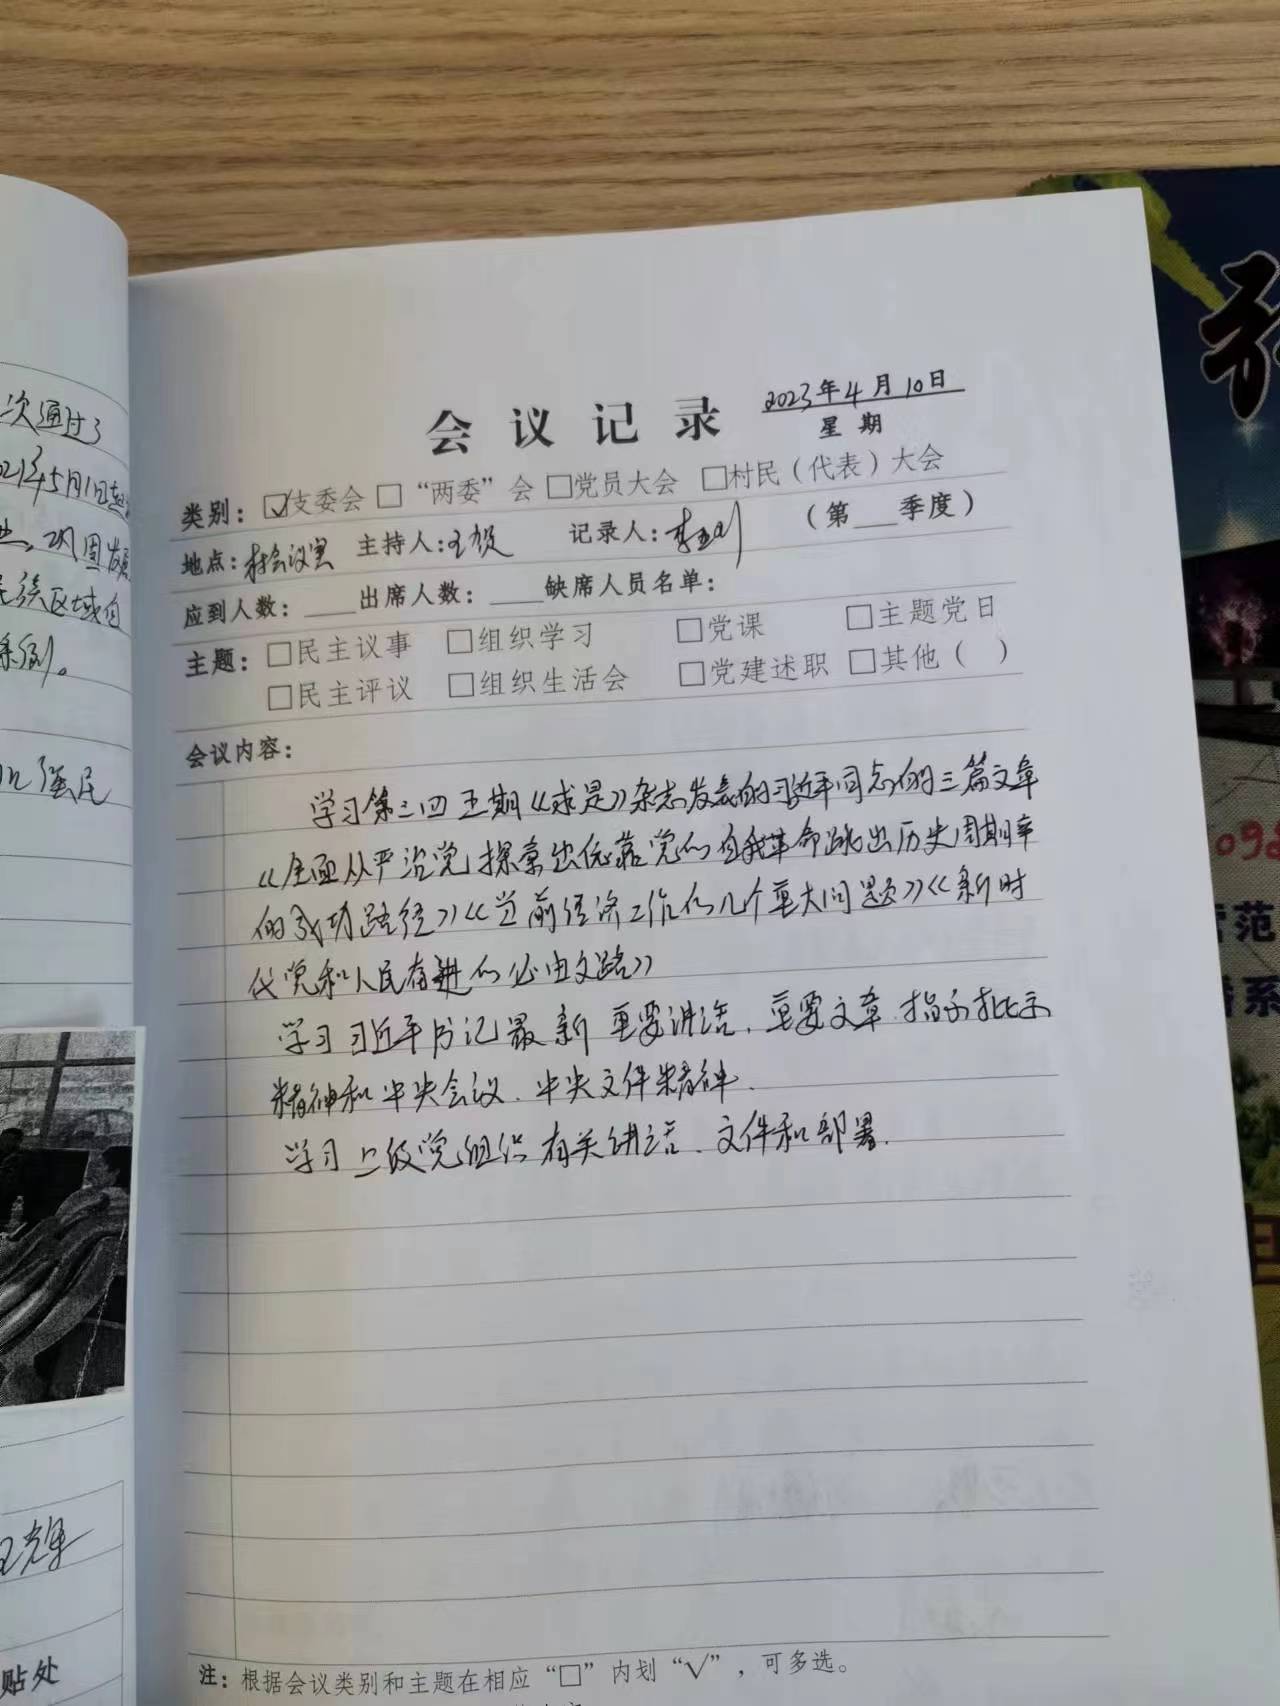 次通过了
021年5月1日起
巩固发展
民族区域自
条例。
强民
王辉
贴处
会议记录
2023年4月10日
星期
类别：☑支委会 □“两委”会 □党员大会 □村民（代表）大会
地点：村会议室 主持人：王 记录人：李 （第___季度）
应到人数：___出席人数：___缺席人员名单：
主题：□民主议事 □组织学习 □党课 □主题党日
□民主评议 □组织生活会 □党建述职 □其他（ ）
会议内容：
学习第三四五期《求是》杂志发表的习近平同志的三篇文章
《全面从严治党探索出依靠党的自我革命跳出历史周期率
的成功路径》《当前经济工作的几个重大问题》《新时
代党和人民奋进的必由之路》
学习习近平书记最新重要讲话、重要文章、指示批示
精神和中央会议、中央文件精神.
学习上级党组织有关讲话、文件和部署.
注：根据会议类别和主题在相应“□”内划“√”，可多选。
范
系
日